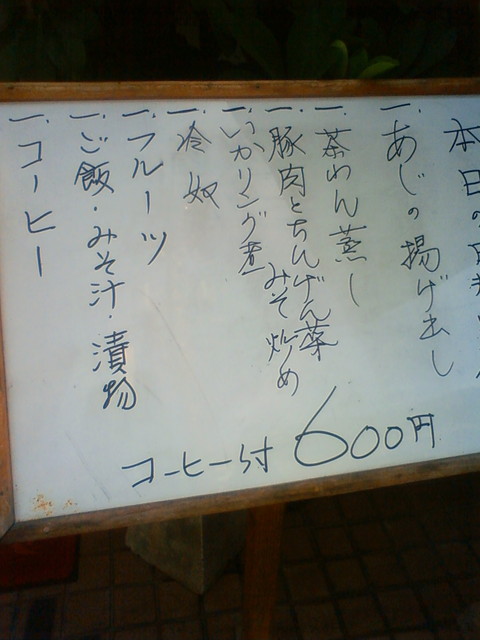 本日の
一. あじの揚げ出し
一. 茶わん蒸し
一. 豚肉とちんげん菜
みそ炒め
一. いかリング煮
一. 冷奴
一. フルーツ
一. ご飯・みそ汁・漬物
一. コーヒー
コーヒー付 600円